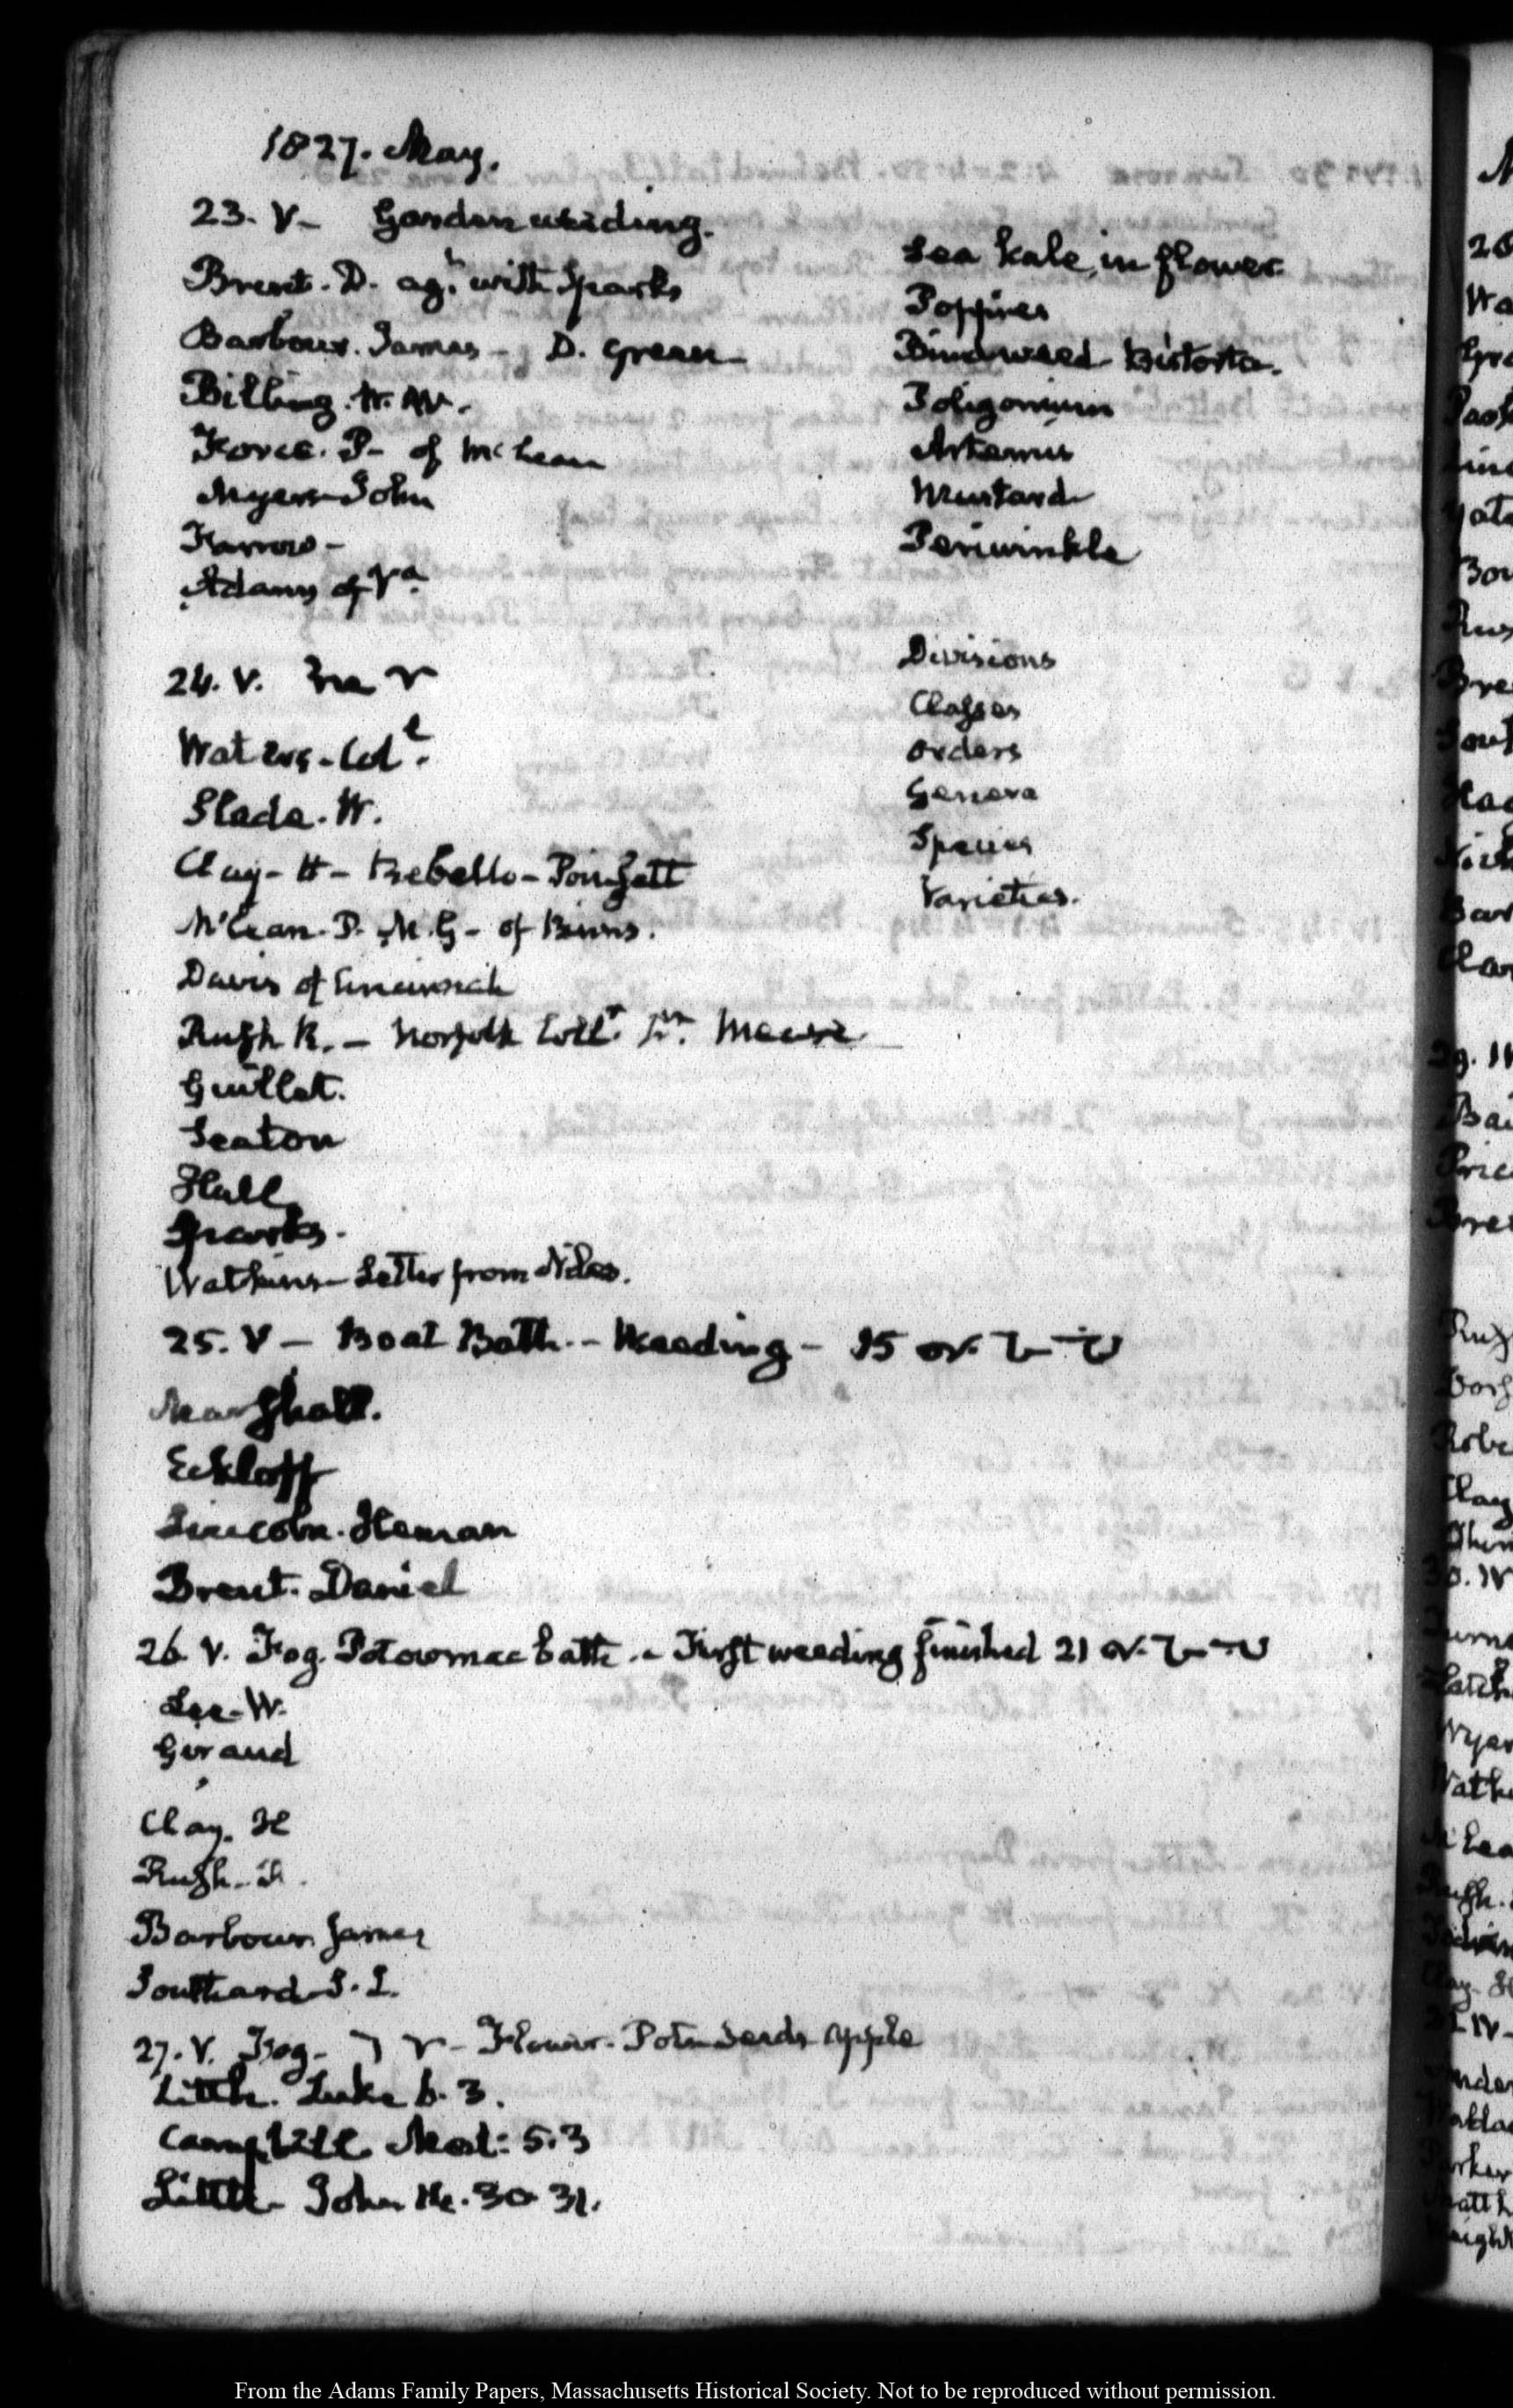 1827. May.
23. V— Garden weeding.
Brent. D. agn. with Sparks
Barbour. James — D. Green —
Billing. W. W.
Force. P— of McLean
Myers John
Farrow —
Adams of Va.
Sea kale, in flower
Poppies
Bindweed Bistorta.
Poligonium
Artemis
Mustard
Periwinkle
Divisions
Classes
Orders
Genera
Species
Varieties.
24. V.
Waters. Col.
Slade. W.
Clay— H— Rebello — Poinsett
McLean. P. M. G— of Binns.
Davis of Cincinnati
Rush R. — Norfolk Collr.
Guillet.
Seaton
Hall
Sparks.
Watkins — Letter from Niles.
25. V — Boat Bath. — Weeding — 15
Marshall.
Eckloff
Lincoln. Heman
Brent. Daniel
26. V. Fog. Potowmac bath. — First weeding finished 21
Lee. W.
Giraud
Clay. H
Rush. R.
Barbour James
Southard S. L.
27. V. Fog— Flower. Seeds apple
Little. Luke 6. 3.
Campbell. Mat: 5. 3
Little— John 30 31.
From the Adams Family Papers, Massachusetts Historical Society. Not to be reproduced without permission.